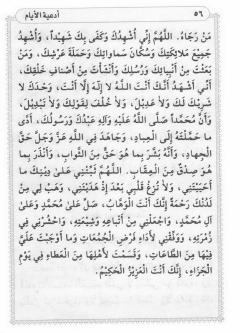 ٥٦ أدعية الأيام
مَنْ رَجَاهُ. اَللّٰهُمَّ إِنِّي أُشْهِدُكَ وَكَفَى بِكَ شَهِيْدَاً، وَأُشْهِدُ
جَمِيْعَ مَلَائِكَتِكَ وَسُكَّانَ سَمَاوَاتِكَ وَحَمَلَةَ عَرْشِكَ، وَمَنْ
بَعَثْتَ مِنْ أَنْبِيَائِكَ وَرُسُلِكَ وَأَنْشَأْتَ مِنْ أَصْنَافِ خَلْقِكَ،
أَنِّي أَشْهَدُ أَنَّكَ أَنْتَ اللّٰهُ لَا إِلٰهَ إِلَّا أَنْتَ، وَحْدَكَ لَا
شَرِيْكَ لَكَ وَلَا عَدِيْلَ، وَلَا خُلْفَ لِقَوْلِكَ وَلَا تَبْدِيْلَ،
وَأَنَّ مُحَمَّداً صَلَّى اللّٰهُ عَلَيْهِ وَآلِهِ عَبْدُكَ وَرَسُولُكَ، أَدَّى
مَا حَمَّلْتَهُ إِلَى الْعِبادِ، وَجَاهَدَ فِي اللّٰهِ عَزَّ وَجَلَّ حَقَّ
الْجِهادِ، وَأَنَّهُ بَشَّرَ بِمَا هُوَ حَقٌّ مِنَ الثَّوابِ، وَأَنْذَرَ بِمَا
هُوَ صِدْقٌ مِنَ الْعِقَابِ. اَللّٰهُمَّ ثَبِّتْنِي عَلَى دِيْنِكَ مَا
أَحْيَيْتَنِي، وَلَا تُزِغْ قَلْبِي بَعْدَ إِذْ هَدَيْتَنِي، وَهَبْ لِي مِنْ
لَدُنْكَ رَحْمَةً إِنَّكَ أَنْتَ الْوَهَّابُ، صَلِّ عَلَى مُحَمَّدٍ وَعَلَىٰ
آلِ مُحَمَّدٍ، وَاجْعَلْنِي مِنْ أَتْبَاعِهِ وَشِيْعَتِهِ، وَاحْشُرْنِي فِي
زُمْرَتِهِ، وَوَفِّقْنِي لِأَدَاءِ فَرْضِ الْجُمُعَاتِ وَمَا أَوْجَبْتَ عَلَيَّ
فِيْهَا مِنَ الطَّاعَاتِ، وَقَسَمْتَ لِأَهْلِهَا مِنَ الْعَطَاءِ فِي يَوْمِ
الْجَزَاءِ، إِنَّكَ أَنْتَ الْعَزِيْزُ الْحَكِيْمُ.